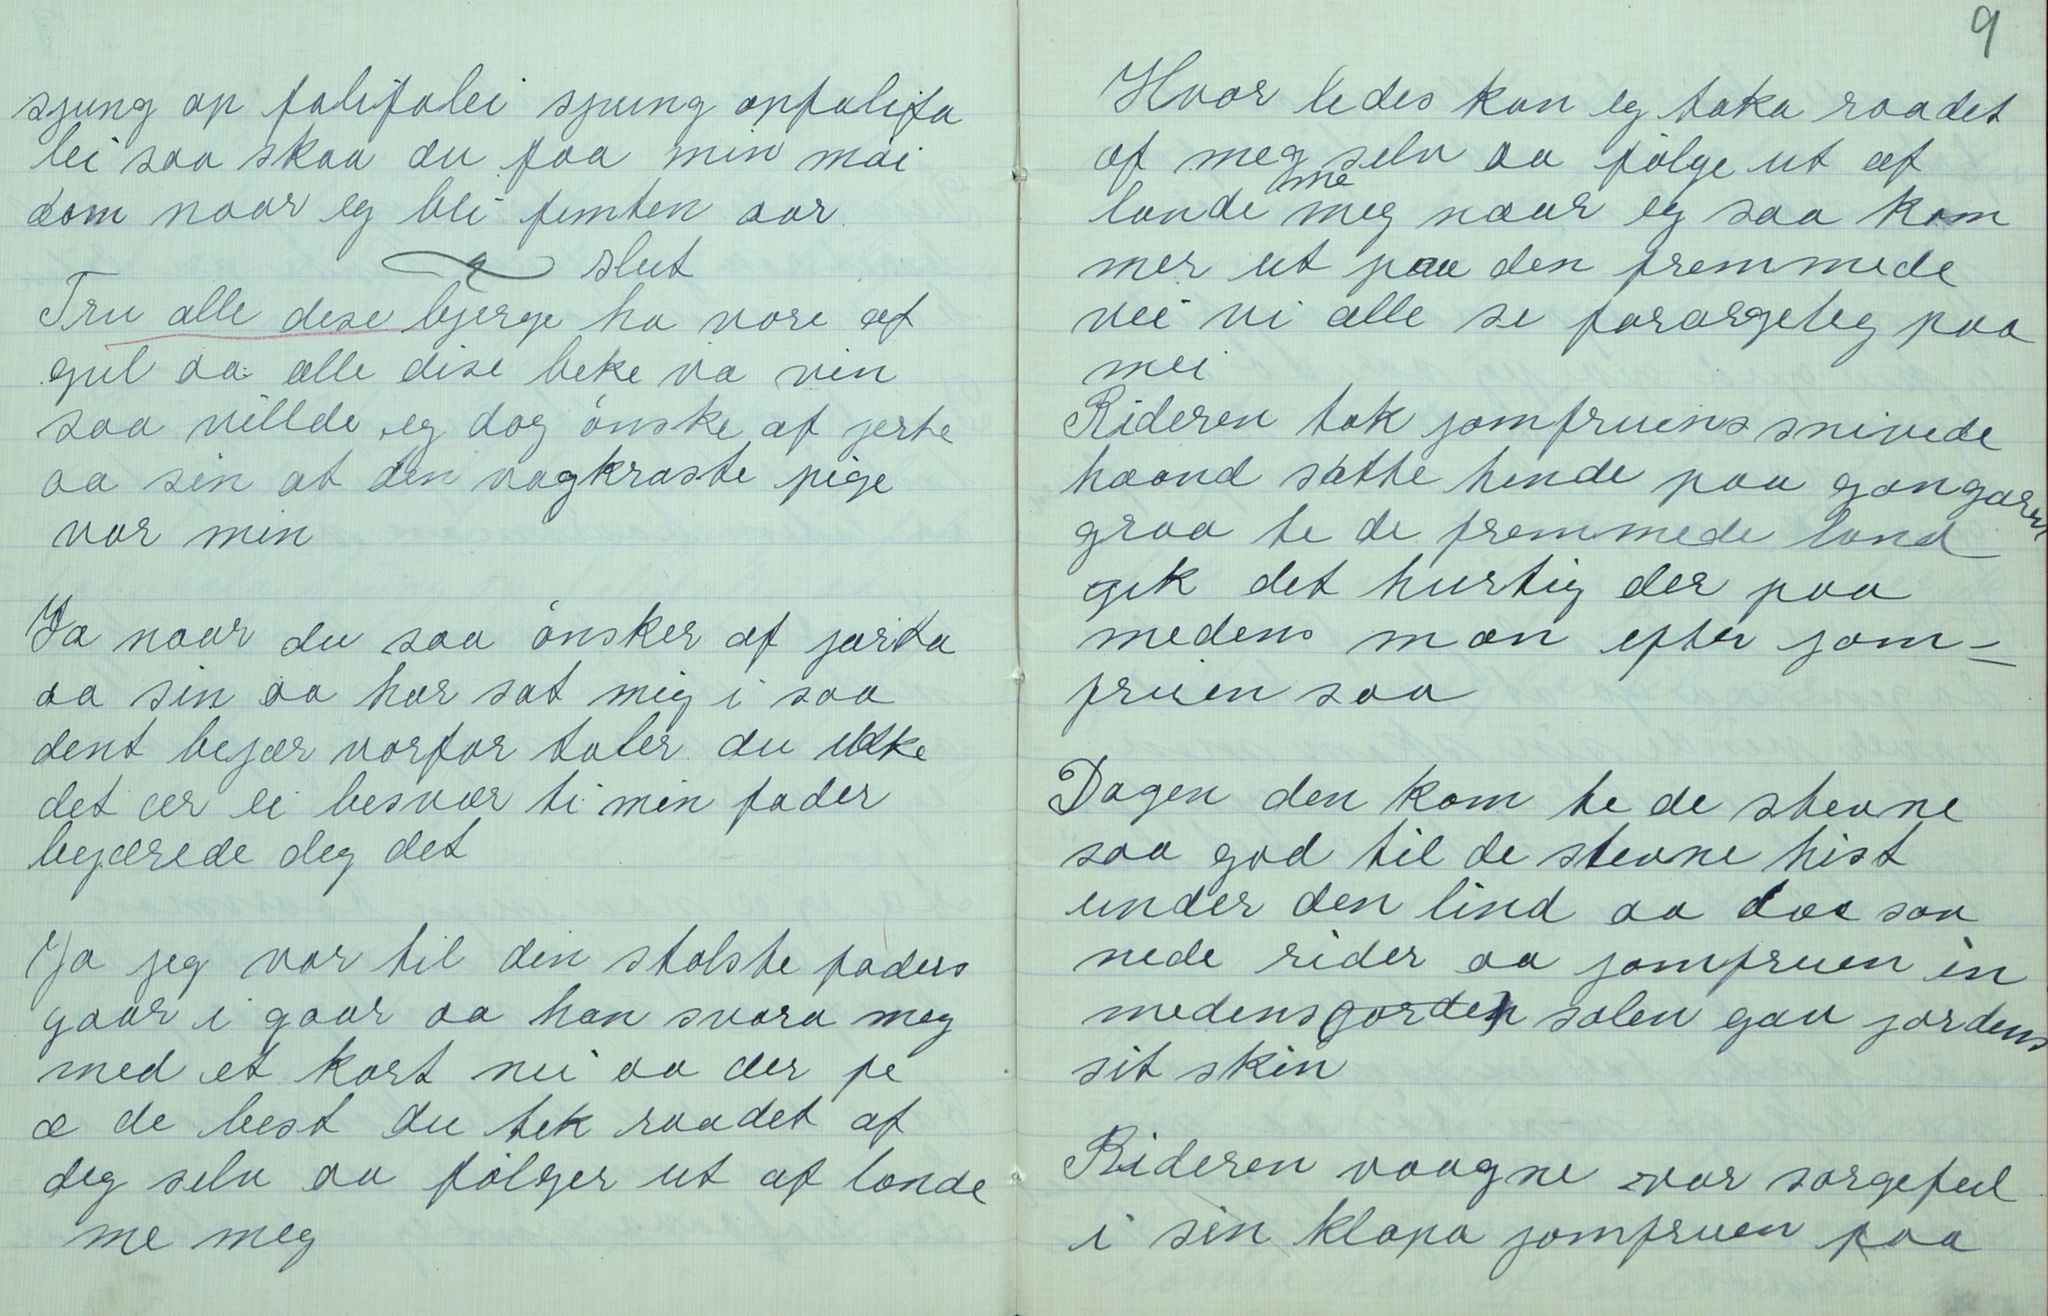 sjung op falifalei sjung opfalifa
lei saa skaa du faa min mai
dom naar eg bli femten aar
slut
Tru alle dese bjerge ha vore af
gul aa alle dise beke va vin
saa villde eg dog ønske af jerte
aa sin at den vagkraste pige
var min
Ja naar du saa ønsker af jarta
aa sin aa har sat mig i saa
dent bejær vorfor taler du ikke
det ær ei besvær ti min fader
bejærede deg det
Ja jeg var til din stolste faders
gaar i gaar aa han svara meg
med et kort nei aa der fe
æ de best du tek raadet af
deg selv aa følger ut af lande
me meg
9
Hvor ledes kan eg taka raadet
af meg selv aa følge ut af
lande me meg naar eg saa kom
mer ut paa den fremmede
vei vi alle se forargeleg paa
mei
Rideren tok jomfruens snivede
haand satte hende paa gangaren
graa te de fremmede land
gik det hurtig der paa
medens man efter jom-
fruen saa
Dagen den kom te de stevne
saa god til de stevne hist
under den lind aa saa
nede rider aa jomfruen in
medens jorden solen gav jordens
sit skin
Rideren vaagne var sorgeful
i sin klapa jomfruen paa